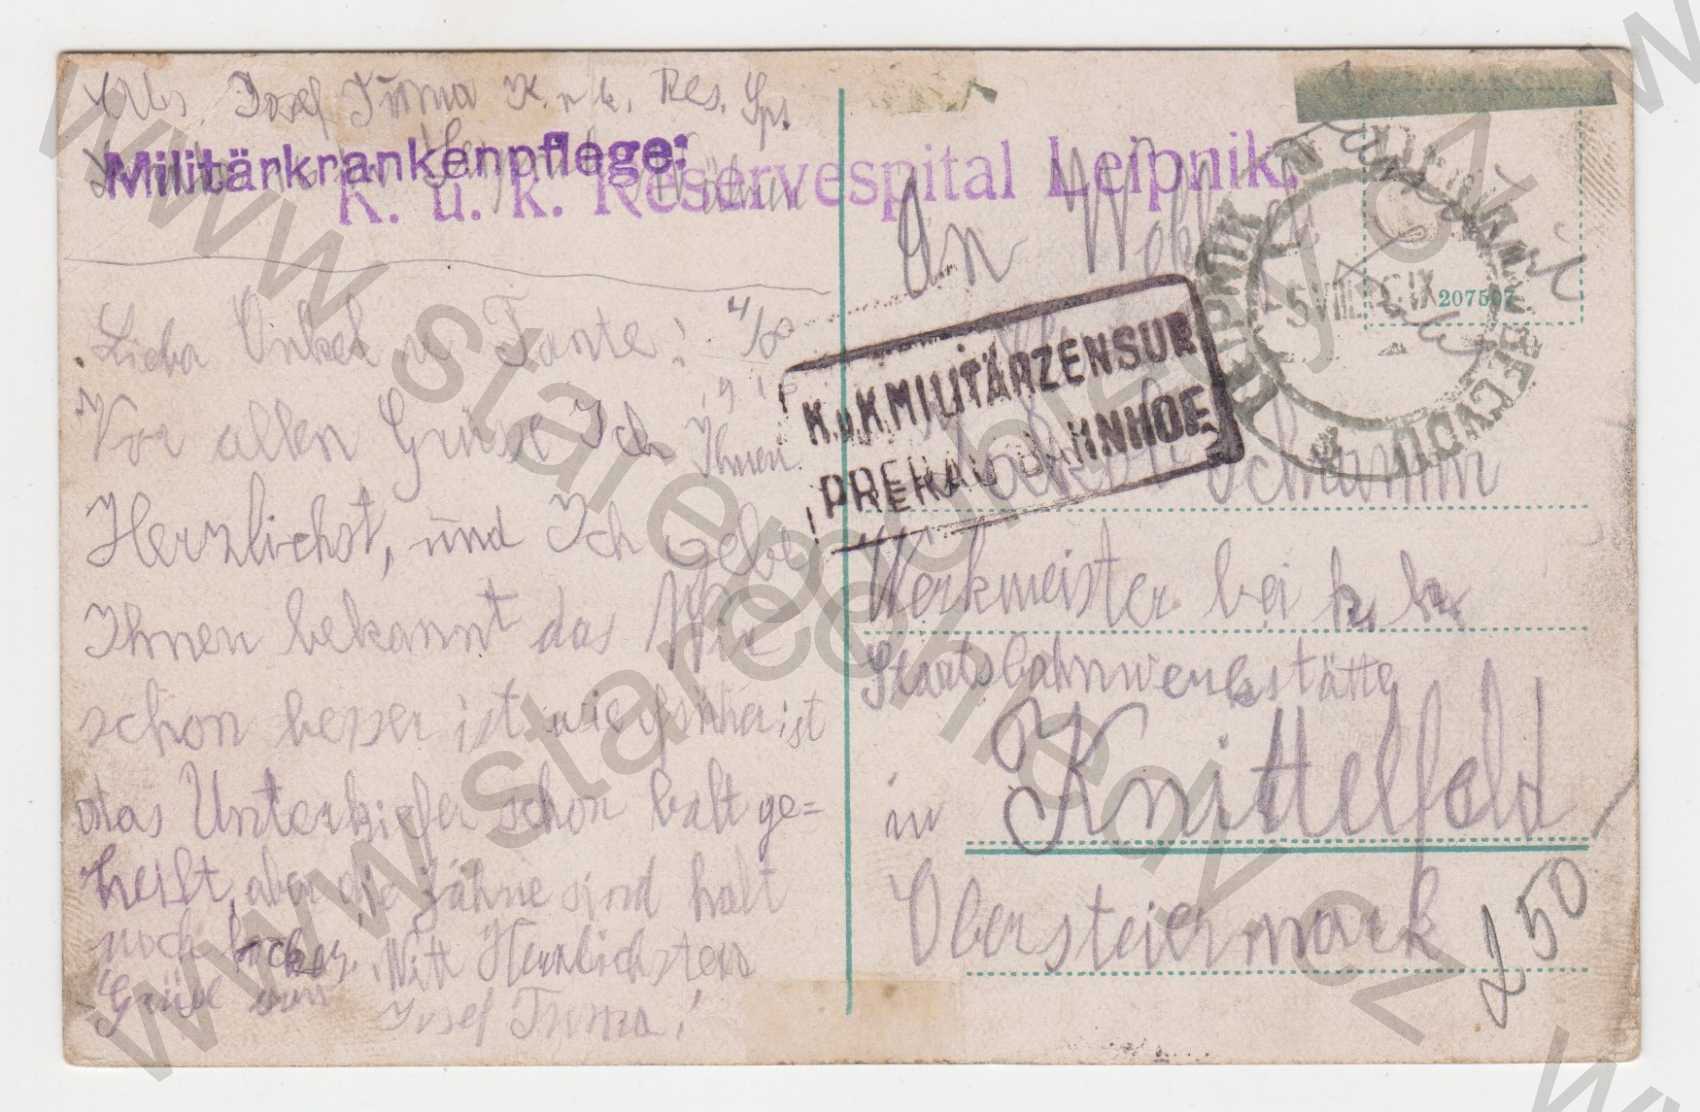 Abs. Josef Tuma K. u. k. Res. Sps.
Militärkrankenpflege:
K. u. k. Reservespital Leipnik.
Liebe Onkel u Tante! 4/8
Vor allen Grüse Ich Ihnen
Herzlichst, und Ich gebe
Ihnen bekannt das Mir
schon besser ist wie früher ist
das Unterkiefer schon balt ge=
heilt, aber die Zähne sind halt
noch locker. Mitt Herzlichsten
Grüse von Josef Tuma!
An
K.u.K.MILITÄRZENSUR
PRERAU BAHNHOF
LEIPNIK
5 VIII
207507
Schramm
Werkmeister bei k. k.
Staatsbahnwerkstätte
in Knittelfeld
Obersteiermark
250
www.starepohledy.cz
www.starepohledy.cz